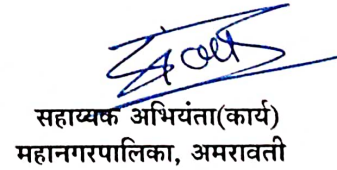 सहाय्यक अभियंता(कार्य)
महानगरपालिका, अमरावती